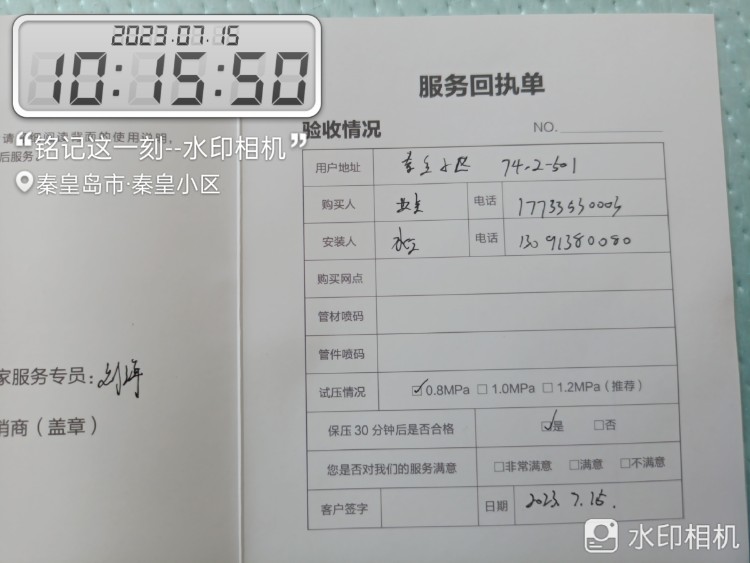 2023.07.15
10:15:50
“铭记这一刻--水印相机”
秦皇岛市·秦皇小区
后服务
家服务专员：
销商（盖章）
服务回执单
验收情况 NO.
用户地址 秦皇小区 74-2-501
购买人 业主 电话
安装人 水工 电话 13091380080
购买网点
管材喷码
管件喷码
试压情况 ☑0.8MPa □1.0MPa □1.2MPa（推荐）
保压30分钟后是否合格 ☑是 □否
您是否对我们的服务满意 □非常满意 □满意 □不满意
客户签字 日期 2023.7.15.
水印相机